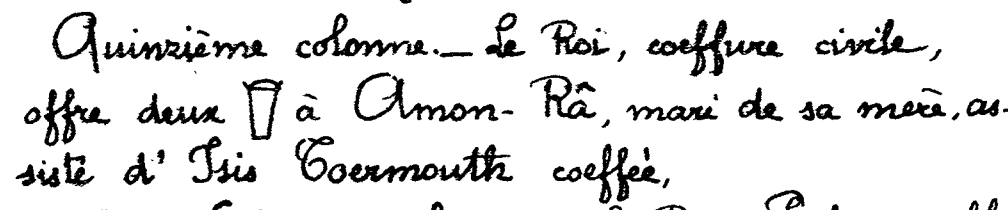 Quinzième colonne. — Le Roi, coeffure civile,
offre deux à Amon-Râ, mari de sa mère, as-
sisté d'Isis Thermouth coefféè,